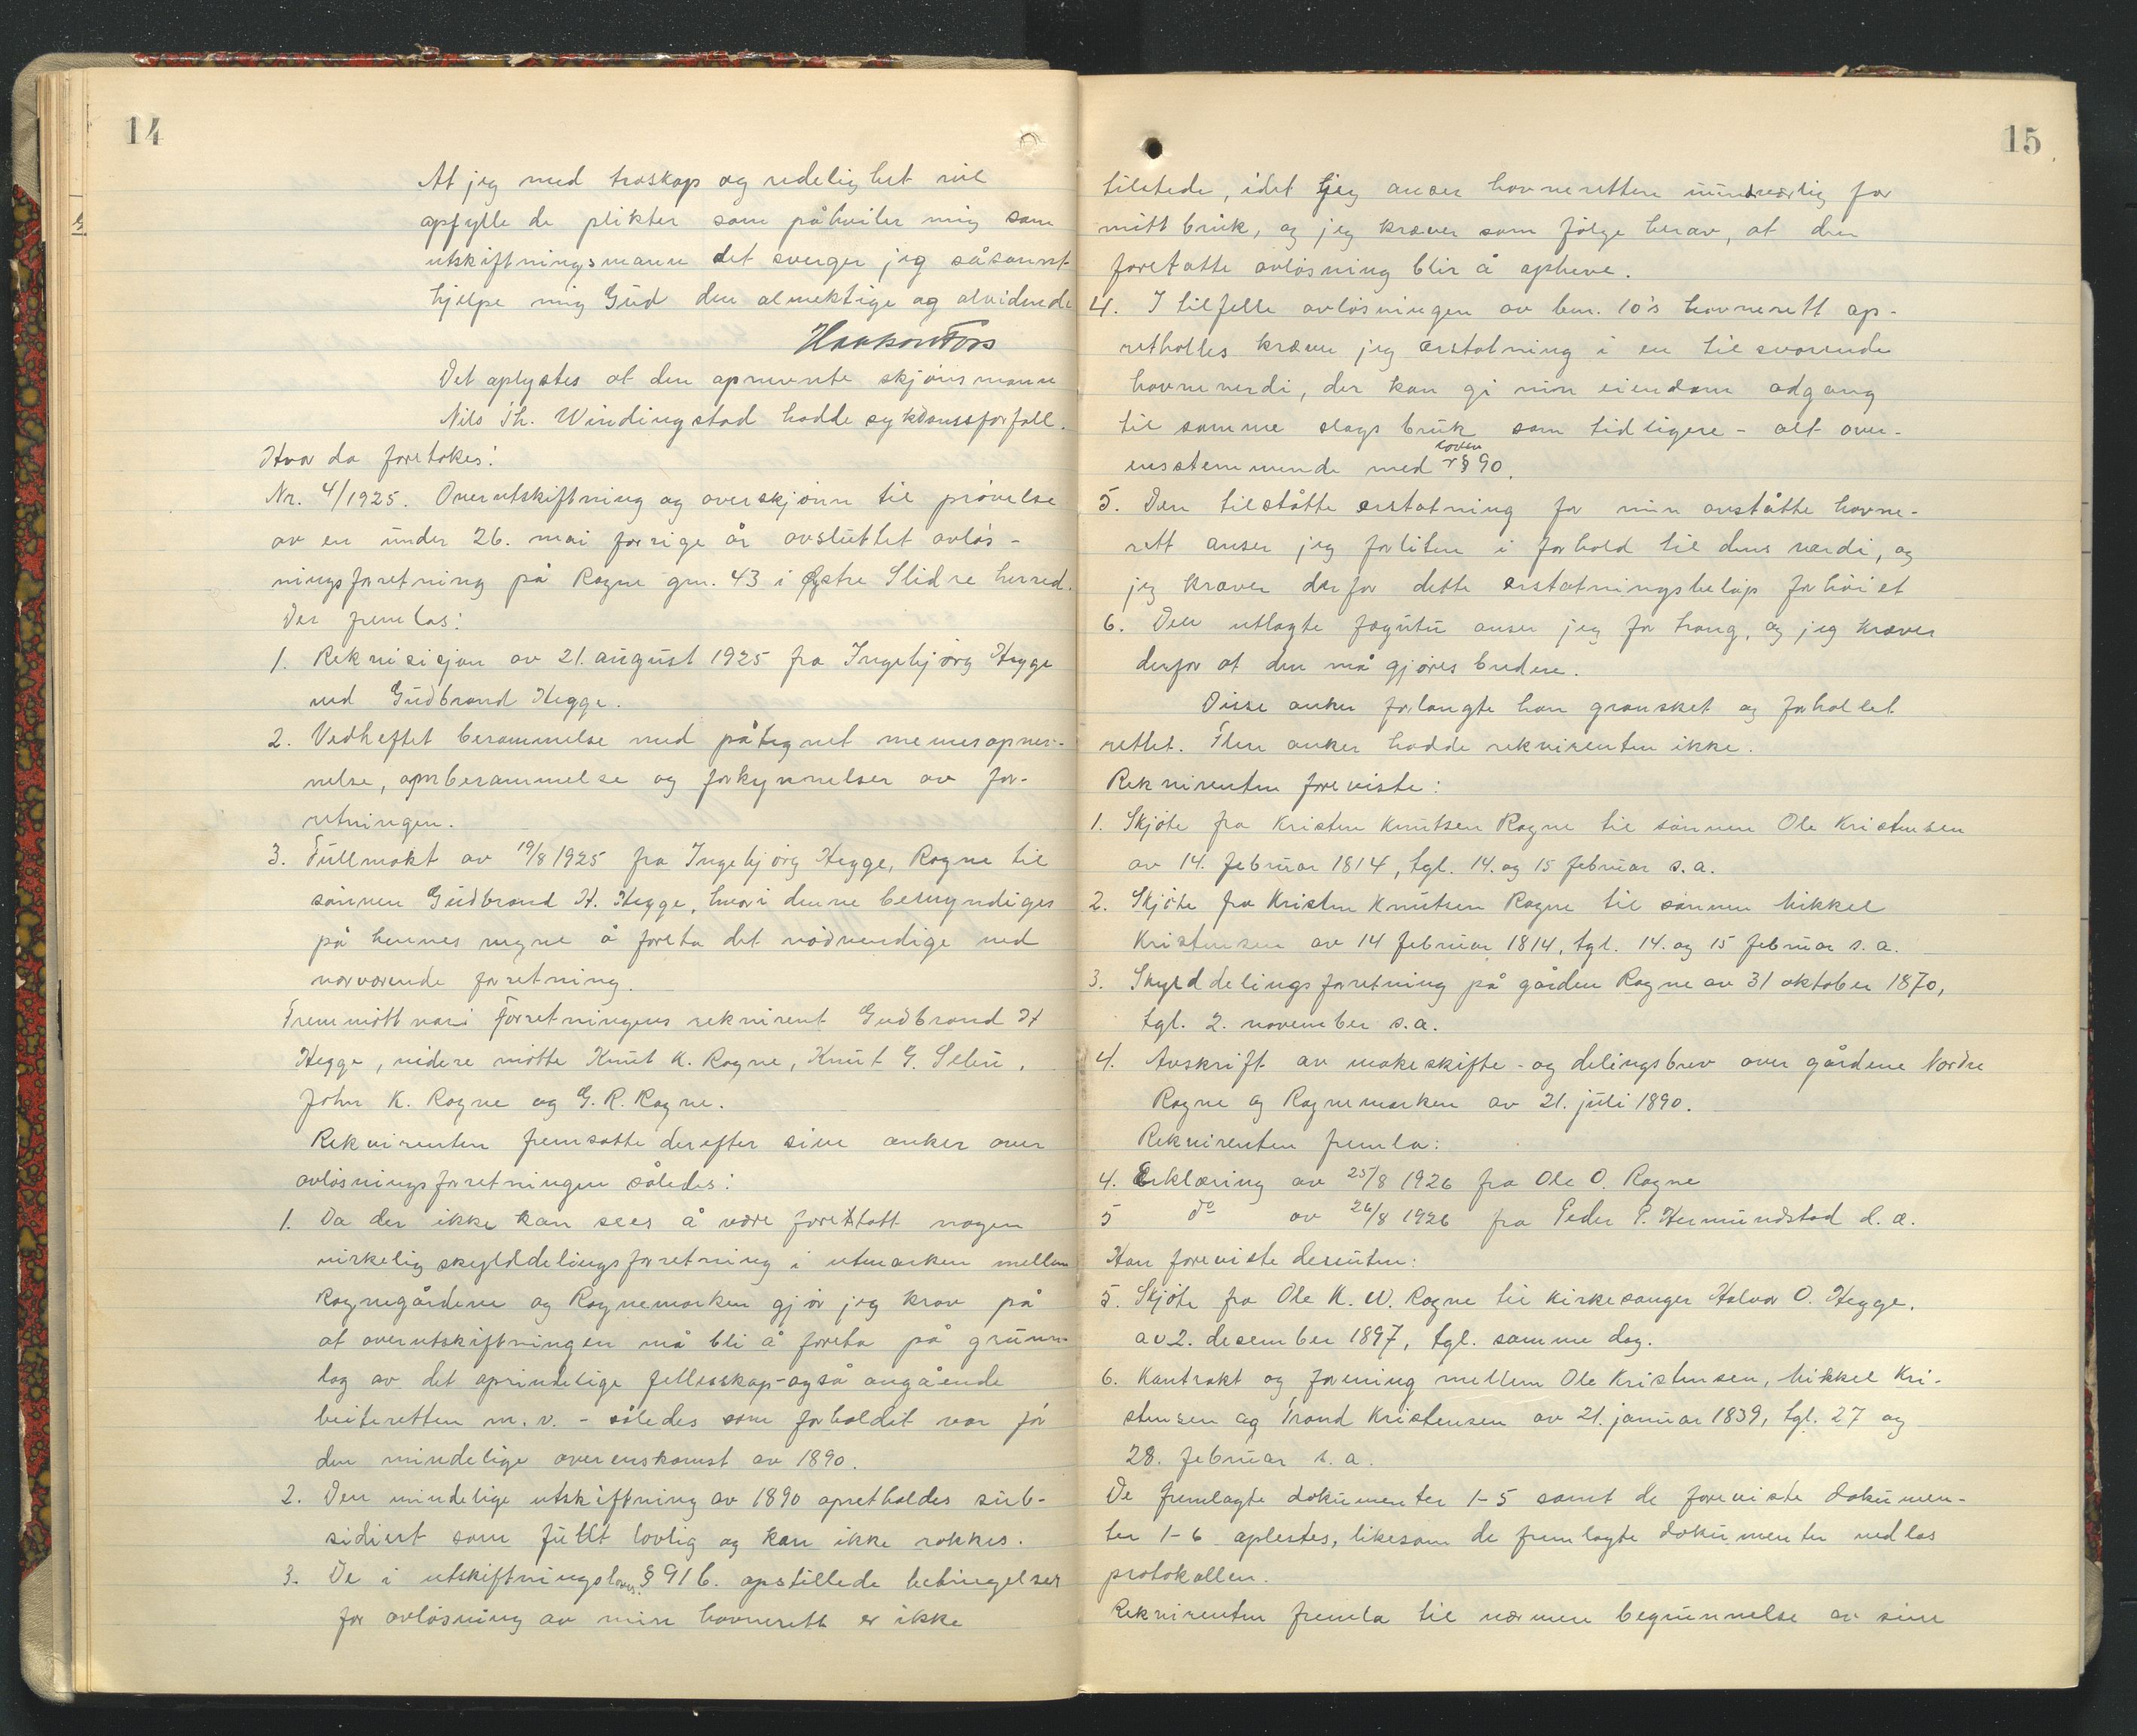 14
At jeg med troskap og redelighet vil
opfylle de plikter som påhviler mig som
utskiftningsmann det sverger jeg såsannt
hjelpe mig Gud den almektige og alvidende
Haakon Fors
Det oplystes at den opnevnte skjønsmann
Nils Th. Windingstad hadde sykdomsforfall.
Hvor da foretokes:
Nr. 4/1925. Overutskiftning og overskjønn til prøvelse
av en under 26. mai forrige år avsluttet avløs-
ningsforretning på Rogne gnr. 43 i Østre Slidre herred.
Der fremlas:
1. Rekvisisjon av 21. august 1925 fra Ingebjørg Hegge
ved Gudbrand Hegge.
2. Vedheftet berammelse med påtegnet mennesopnev-
nelse, omberammelse og forkynnelser av for-
retningen.
3. Fullmakt av 19/8 1925 fra Ingebjørg Hegge, Rogne til
sønnen Gudbrand H. Hegge, hvori denne bemyndiges
på hennes vegne å foreta det nødvendige ved
nærværende forretning.
Fremmøtt var: Forretningens rekvirent Gudbrand H
Hegge, videre møtte Knut K. Rogne, Knut G. Seleu,
John K. Rogne og G. R. Rogne.
Rekvirenten fremsatte derefter sine anker over
avløsningsforretningen således:
1. Da der ikke kan sees å være foretatt nogen
virkelig skylddelingsforretning i utmarken mellem
Rognegårdene og Rognemarken gjør jeg krav på
at overutskiftningen må bli å foreta på grunn-
lag av det oprindelige fellesskap - også angående
beiteretten m.v. - således som forholdet var før
den mindelige overenskomst av 1890.
2. Den mindelige utskiftning av 1890 opretholdes sub-
sidiert som fullt lovlig og kan ikke rokkes.
3. De i utskiftningslovens § 91 b. opstillede betingelser
for avløsning av min havnerett er ikke
15
tilstede, idet jeg anser havneretten uundværlig for
mitt bruk, og jeg krever som følge herav, at den
foretatte avløsning blir å opheve.
4. I tilfelle avløsningen av bnr. 10's havnerett op-
retholles krever jeg erstatning i en tilsvarende
havneverdi, der kan gi min eiendom adgang
til samme slags bruk som tidligere - alt over-
ensstemmende med lovens § 90.
5. Den tilståtte erstatning for min avståtte havne-
rett anser jeg for liten i forhold til dens verdi, og
jeg krever derfor dette erstatningsbeløp forhøiet
6. Den utlagte fægutu anser jeg for trang, og jeg krever
derfor at den må gjøres bredere.
Disse anker forlangte han gransket og forholdet
rettet. Flere anker hadde rekvirenten ikke.
Rekvirenten foreviste:
1. Skjøte fra Kristen Knutsen Rogne til sønnen Ole Kristensen
av 14. februar 1814, tgl. 14. og 15 februar s.a.
2. Skjøte fra Kristen Knutsen Rogne til sønnen Mikkel
Kristensen av 14 februar 1814, tgl. 14. og 15 februar s.a.
3. Skylddelingsforretning på gården Rogne av 31 oktober 1870,
tgl. 2. november s.a.
4. Avskrift av makeskifte- og delingsbrev over gårdene Nordre
Rogne og Rognemarken av 21. juli 1890.
Rekvirenten fremla:
4. Erklæring av 25/8 1926 fra Ole O. Rogne
5 do av 26/8 1926 fra Peder P. Hermundstad d.æ.
Han foreviste desuten:
5. Skjøte fra Ole K. W. Rogne til kirkesanger Halvor O. Hegge,
av 2. desember 1897, tgl. samme dag.
6. Kontrakt og forening mellem Ole Kristensen, Mikkel Kri-
stensen og Trond Kristensen av 21. januar 1839, tgl. 27 og
28. februar s.a.
De fremlagte dokumenter 1-5 samt de foreviste dokumen-
ter 1-6 oplestes, likesom de fremlagte dokumenter vedlas
protokollen.
Rekvirenten fremla til nærmere begrunnelse av sine